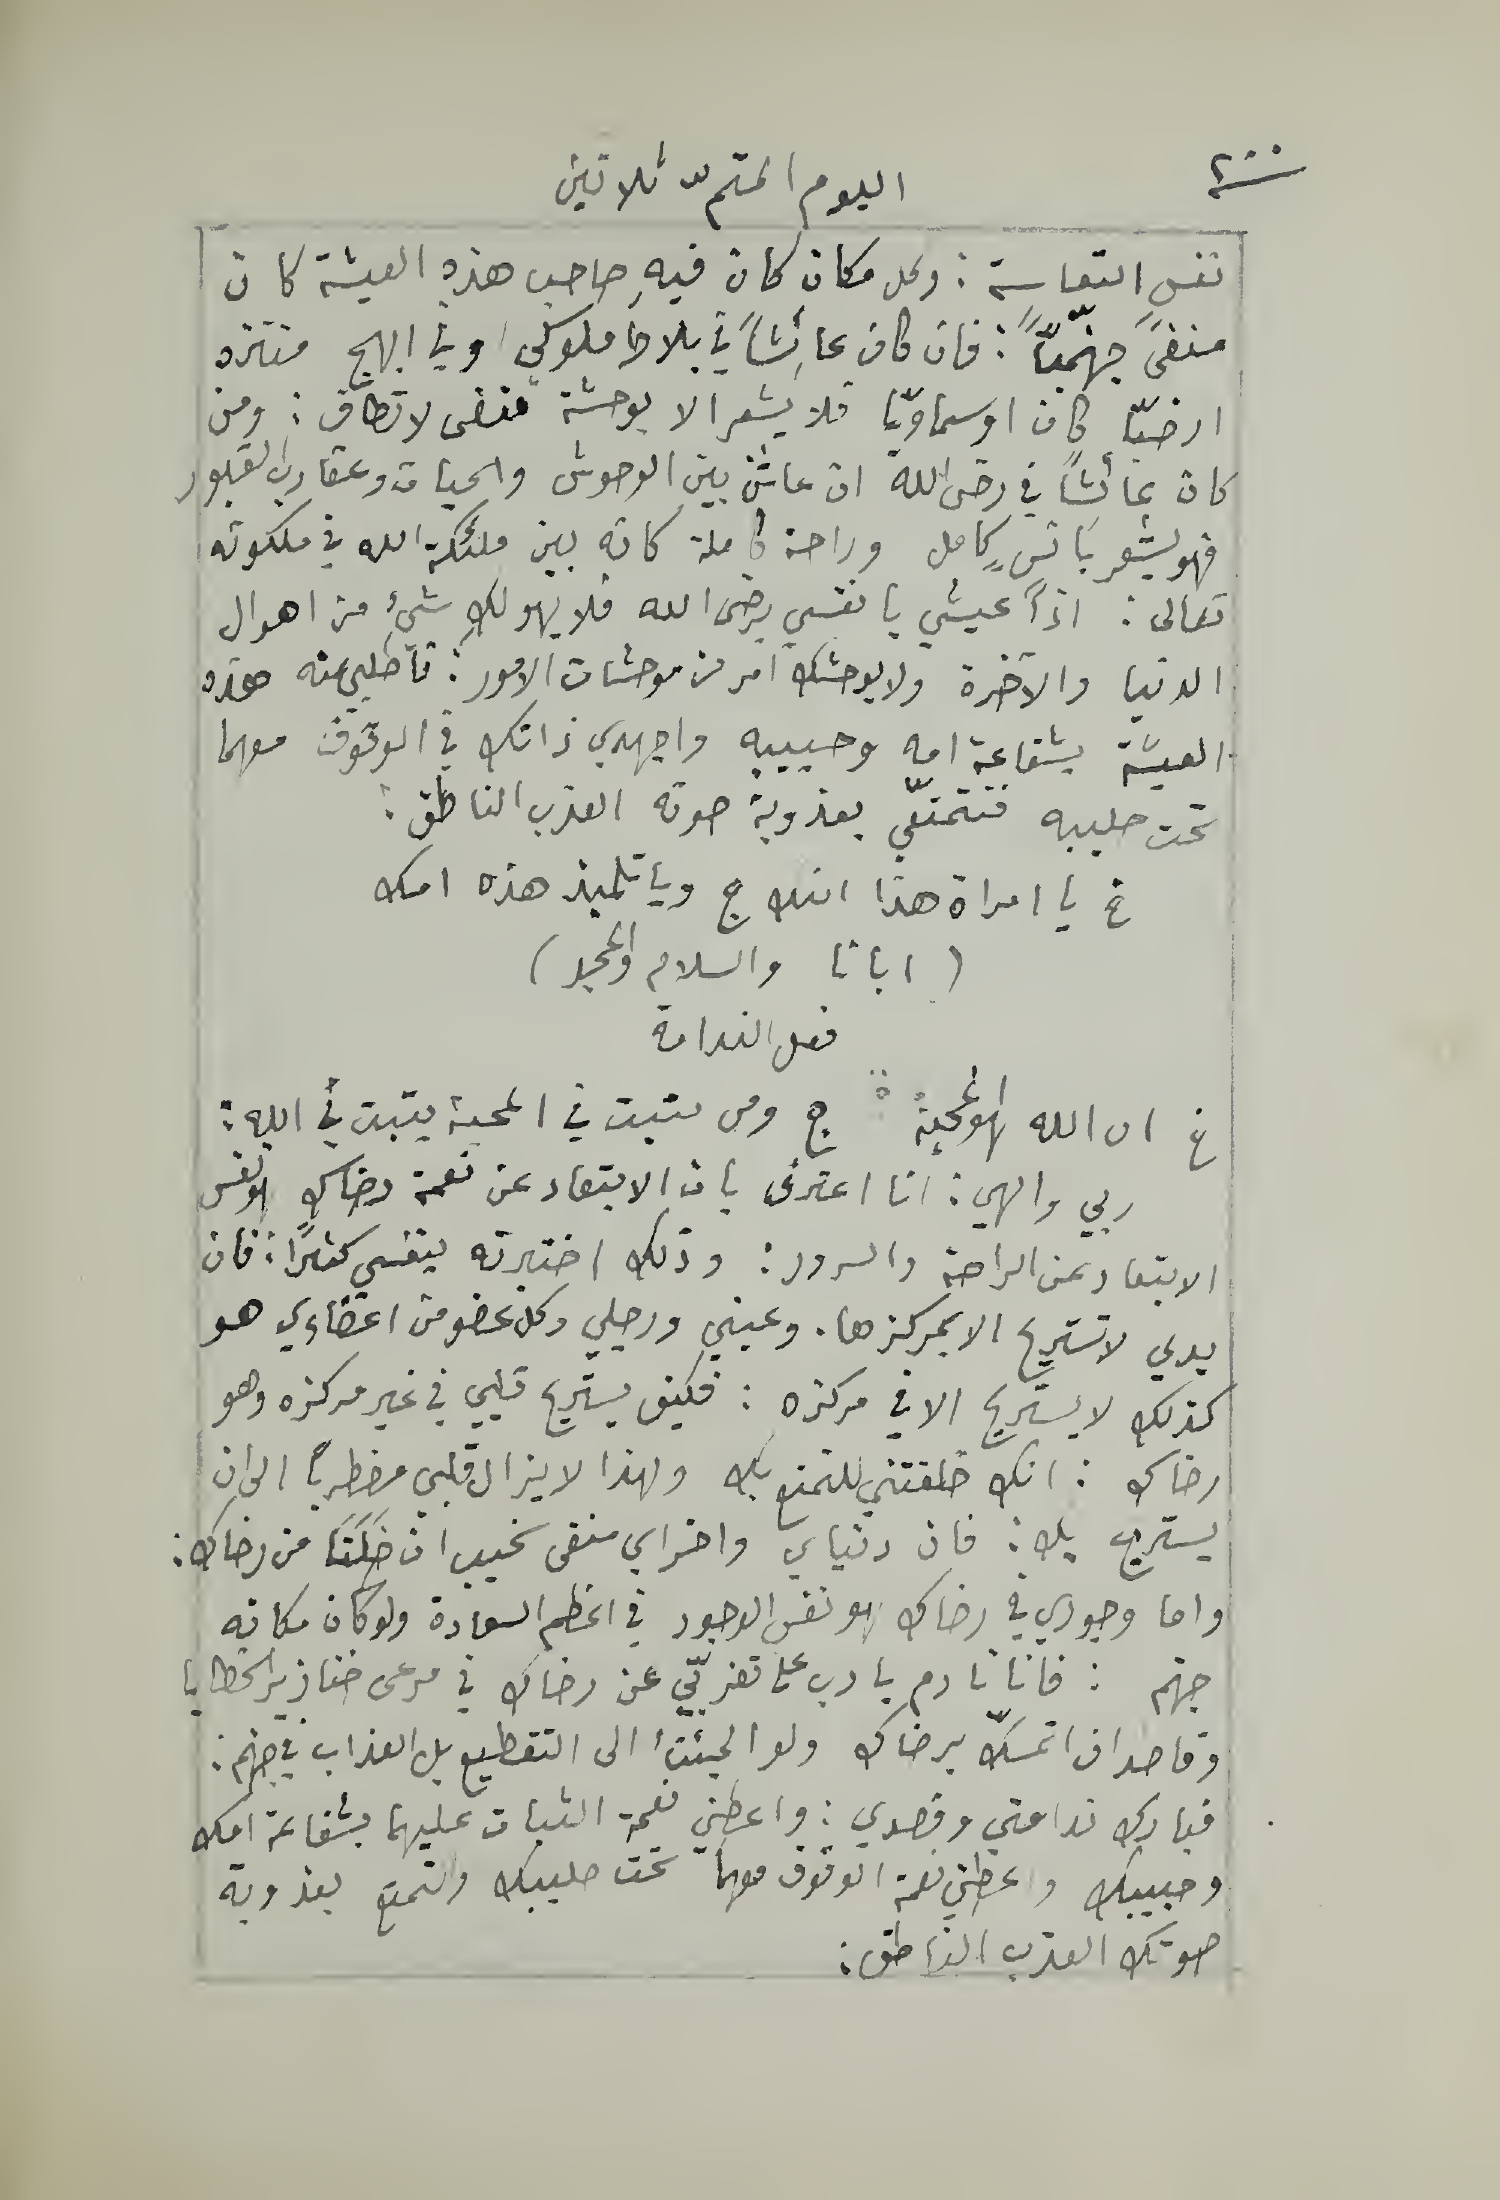 ٢٠٠
اليوم المتم ّ ثلاثين
نفس التعاسة : وكل مكان كان فيهِ صاحب هذه العيشة كان
منفىً جهنّميّاً : فان كان عائشاً في بلاط ملوكي او في ابهج منتزه
ارضيّا كان او سماويّا فلا يشعر الا بوحشة منفى لا تطاق : ومن
كان عائشاً في رضى الله ان عاش بين الوحوش والحيات وعقارب القبور
فهو يشعر بانسٍ كامل وراحة كاملة كانه بين ملئكة الله في ملكوته
تعالى : اذاً عيشي يا نفسي برضى الله فلا يهولكِ شيءٌ من اهوال
الدنيا والآخرة ولا يوحشك امر من موحشات الامور : فاطلبي منه هذه
العيشة بشفاعة امه وحبيبه واجهدي ذاتك في الوقوف معهما
تحت صليبه فتتمتّعي بعذوبة صوته العذب الناطق :
غ يا امراة هذا ابنك ج ويا تلميذ هذه امك
( ابانا والسلام والمجد )
فعل الندامة
غ ان الله لهو المحبة : ج ومن يثبت في المحبة يثبت في الله :
ربي والهي : انا اعترف بان الابتعاد عن نعمة رضاك هو نفس
الابتعاد عن الراحة والسرور : وذلك اختبرته بنفسي كثيرًا : فان
يدي لا تستريح الا بمركزها . وعيني ورجلي وكل عضو من اعضاءي هو
كذلك لا يستريح الا في مركزه : فكيف يستريح قلبي في غير مركزه وهو
رضاك : انك خلقتني للتمتع بك ولهذا لا يزال قلبي مضطربًا الى ان
يستريح بك : فان دنياي واخراي منفى نحيب ان خلتَا من رضاك :
واما وجودي في رضاك لهو نفس الوجود في اعظم السعادة ولو كان مكانه
جهنم : فانا نادم يا رب على تغربّي عن رضاك في مرعى خنازير الخطايا
وقاصد ان اتمسّك برضاك ولو الجئتُ الى التقطيع بل العذاب في جهنم :
فبارك ندامتي وقصدي : واعطني نعمة الثبات عليهما بشفاعة امك
وحبيبك واعطني نعمة الوقوف معهما تحت صليبك والتمتع بعذوبة
صوتك العذب الناطق :